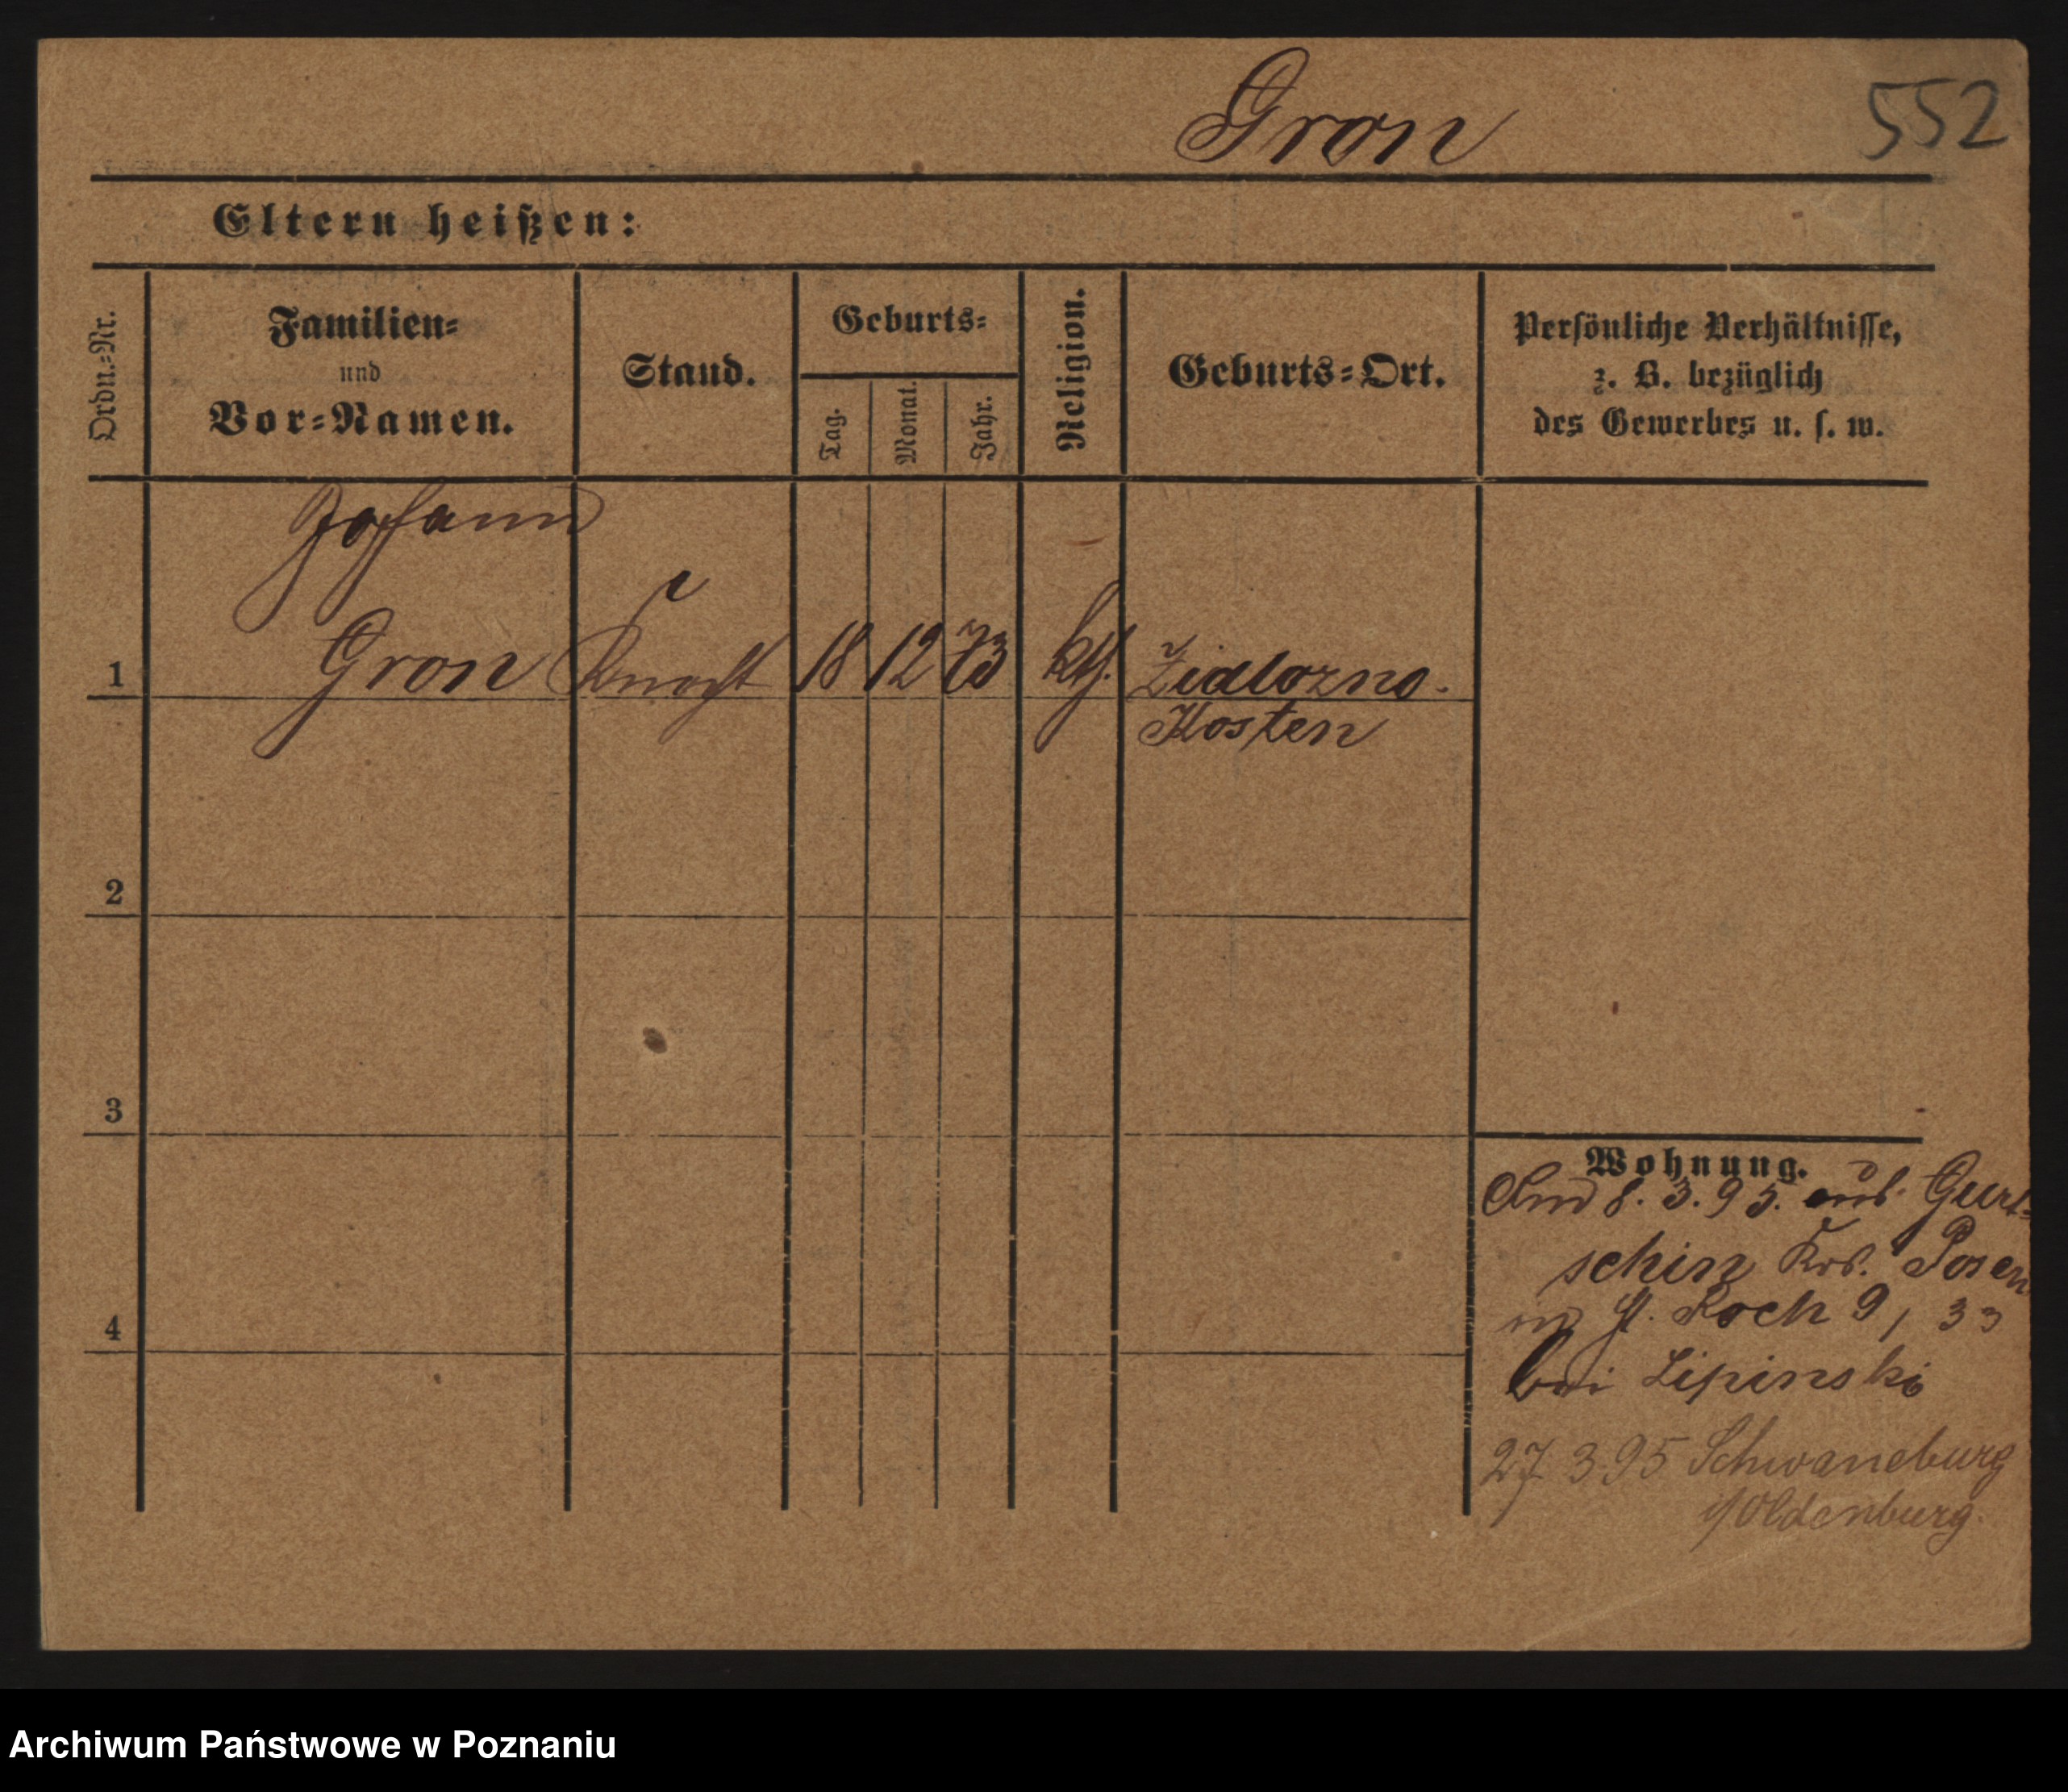 Gron 552
Eltern heißen:
Ordn.=Nr.
Familien=
und
Vor=Namen.
Stand.
Geburts=
Tag.
Monat.
Jahr.
Religion.
Geburts=Ort.
Persönliche Verhältnisse,
z. B. bezüglich
des Gewerbes u. s. w.
Johann
1 Gron Knecht 18 12 73 kth. Zidlozno.
Kosten
2
3
4
Wohnung.
8. 3. 95. aus Gurt=
schin Krs. Posen
in St. Roch 9, 33
bei Lipinski
27 3. 95 Schwaneburg
i/Oldenburg.
Archiwum Państwowe w Poznaniu